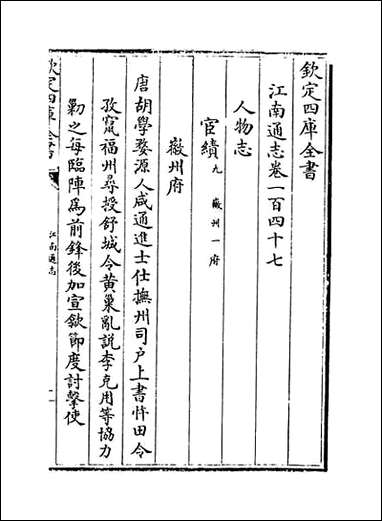 欽定四庫全書
江南通志卷一百四十七
人物志
宦績九 徽州一府
徽州府
唐胡學婺源人咸通進士仕撫州司户上書忤田令
孜竄福州尋授舒城令黄巢亂說李克用等協力
勦之每臨陣為前鋒後加宣歙節度討擊使
欽定四庫全書
江南通志
一